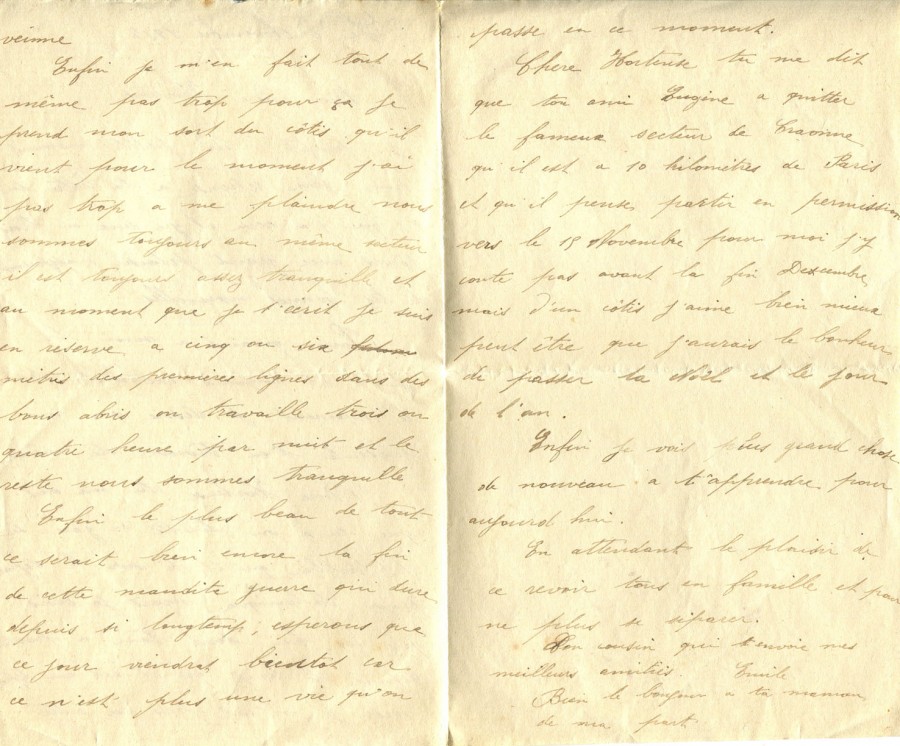 veinne
Enfin je m'en fait tout de
même pas trop pour ça Je
prend mon sort du côtis qu'il
vient pour le moment j'ai
pas trop a me plaindre nous
sommes toujours au même secteur
il est toujours assez tranquille et
au moment que je t'écrit je suis
en réserve a cinq ou six
métris des premières lignes dans des
bons abris on travaille trois ou
quatre heure par nuit et le
reste nous sommes tranquille
Enfin le plus beau de tout
ce serait bien encore la fin
de cette maudite guerre qui dure
depuis si longtemp, esperons que
ce jour viendrat bientot car
ce n'est plus une vie qu'on
passe en ce moment.
Chere Hortense tu me dit
que ton ami Eugine a quitter
le fameux secteur de Craonne
qu'il est a 10 kilomètres de Paris
et qu'il pense partir en permission
vers le 15 Novembre pour moi j'y
conte pas avant la fin Descembre
mais d'un côtis j'aime bien mieux
peut être que j'aurais le bonheur
de passer la Noël et le jour
de l'an.
Enfin je vois plus grand chose
de nouveau a t'apprendre pour
aujourd hui.
En attendant le plaisir de
ce revoir tous en famille et pour
ne plus se séparer.
Ton cousin qui t envoie mes
meilleurs amitiés. Emile
Bien le bonjour a ta maman
de ma part.